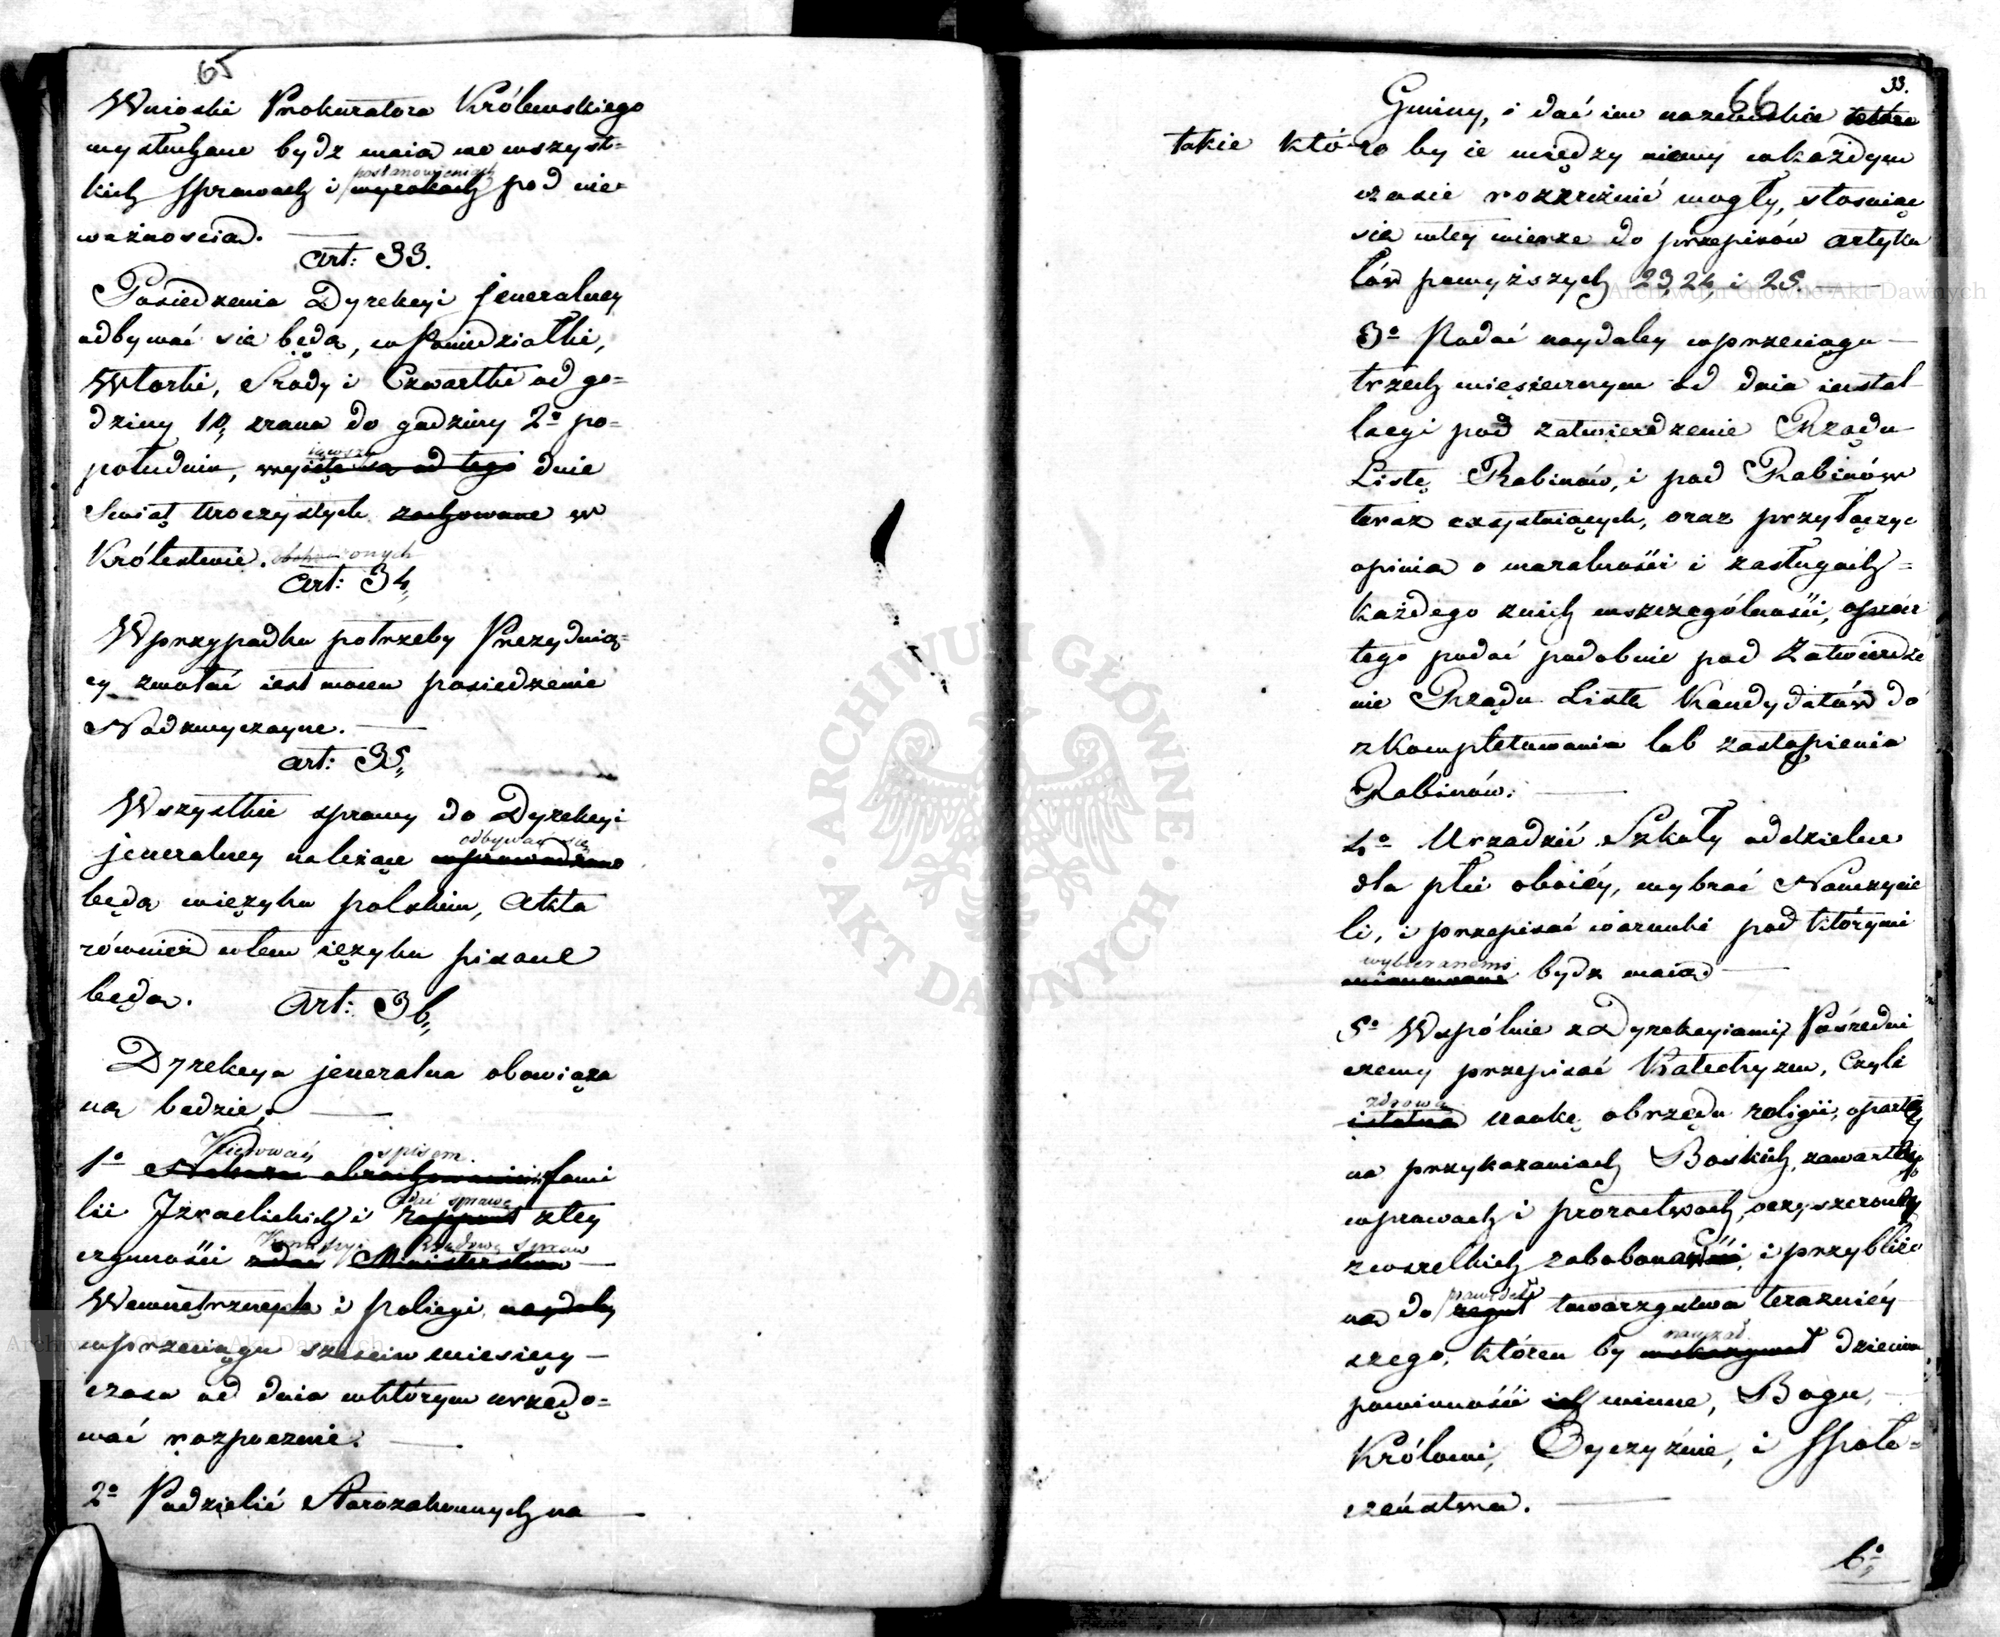 65
Wnioski Prokuratora Królewskiego
wysłuchane bydz maią we wszyst=
kich sprawach i postanowieniach wyrokach pod nie=
ważnością.
Art: 33.
Posiedzenia Dyrekcyi jeneralney
odbywać się będą, w Poniedziałki,
Wtorki, Srody i Czwartki od go=
dziny 10, zrana do godziny 2º po=
południu, wyiąwszy od tego dnie
Swiąt Uroczystych zachowane w
Królestwie. obchodzonych
Art: 34,,
W przypadku potrzeby Prezyduią=
cy zwołać iest mocen posiedzenie
Nadzwyczayne.
Art: 35,,
Wszystkie sprawy do Dyrekcyi
odbywać się
jeneralney należące wprowadzone
będą w ięzyku polskim, Akta
również w tem ięzyku pisane
będą. Art: 36,,
Dyrekcya jeneralna obowiąza
ną będzie,
Kierować spisem
1º Nakazać obrachowanie fami
lii Izraelickich i zdać sprawę rapport z tey
Kommissyi Rządowey spraw
czynności zdać Ministerstwu
Wewnętrznych i policyi naydaley
w przeciągu sześciu miesięcy
czasu od dnia w którym urzędo=
wać rozpocznie.
2º Podzielić Starozakonnych na
33.
66
Gminy, i dać im nazwiska takie
takie któreby ie między niemy w każdym
czasie rozróżnić mogły, stosuiąc
się w tey mierze do przepisów artyku
łów powyższych 23, 24 i 25
3º Podać naydaley w przeciągu
trzech miesięcznym od dnia instal
lacyi pod zatwierdzenie Rządu
Listę Rabinów, i pod Rabinów
teraz exystuiących, oraz przyłączyć
opinią o moralności i zasługach=
każdego z nich w szczególności, oprócz
tego podać podobnie pod Zatwierdze
nie Rządu Listę Kandydatów do
zkompletowania lub zastąpienia
Rabinów.
4º Urządzić Szkoły oddzielne
dla płci oboiéy, wybrać Nauczycie
li, i przepisać warunki pod którymi
wybieranemi
mianowane bydz maią
5º Wspólnie z Dyrekcyiami Pośredni
czemy przepisać Katechyzm, czyli
zdrową
istotną naukę obrzędu religii, opartą
na przykazaniach Boskich, zawartych
w prawach i proroctwach, oczyszczoną
z wszelkich zabobonności, i przybliżo
ną do prawideł reguł towarzystwa teraźniéy
szego, którenby nauczał wskazywał dzieciom
powinności ich winne, Bogu,
Królowi, Oyczyźnie, i Społe=
czeństwu.
6º,,
ARCHIWUM GŁÓWNE
AKT DAWNYCH
Archiwum Główne Akt Dawnych
Archiwum Główne Akt Dawnych